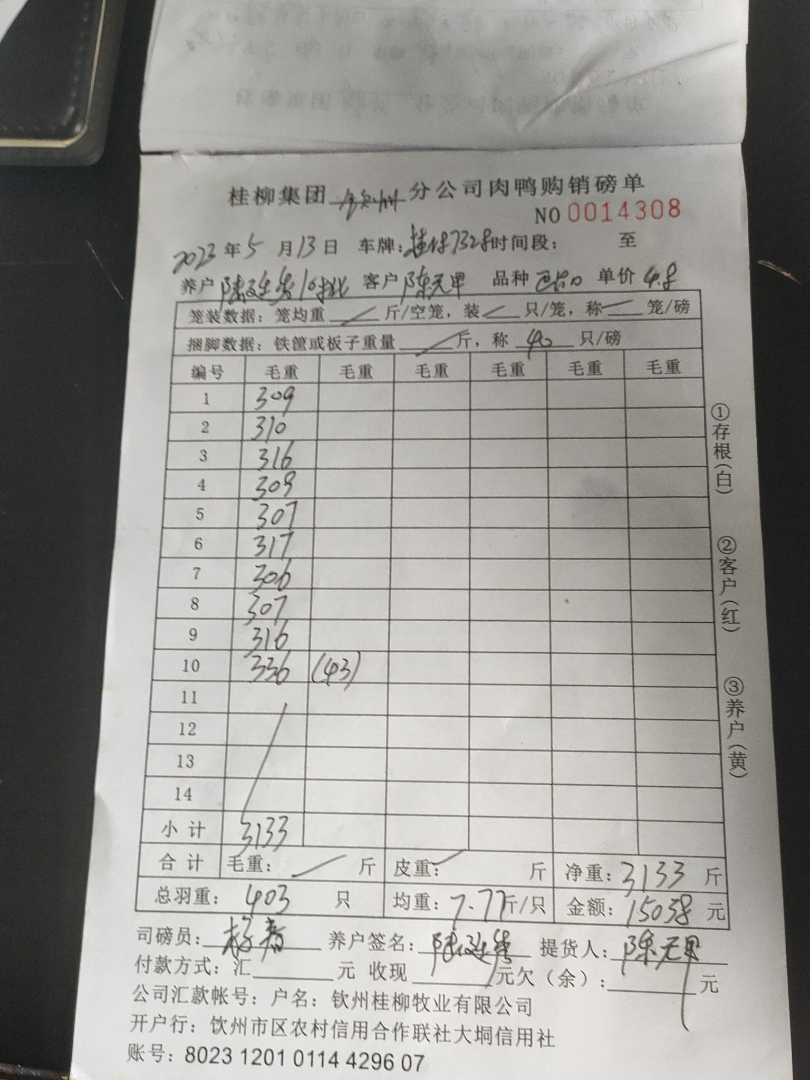 桂柳集团 钦州 分公司肉鸭购销磅单
NO 0014308
2023 年 5 月 13 日 车牌: 时间段: 至
养户 客户 陈元甲 品种 单价 4.8
笼装数据: 笼均重 斤/空笼, 装 只/笼, 称 笼/磅
捆脚数据: 铁筐或板子重量 斤, 称 40 只/磅
编号 毛重 毛重 毛重 毛重 毛重 毛重
1 309
2 310
3 316
4 309
5 307
6 317
7 306
8 307
9 316
10 336 (43)
11
12
13
14
小计 3133
合计 毛重: 斤 皮重: 斤 净重: 3133 斤
总羽重: 403 只 均重: 7.77 斤/只 金额: 15038 元
司磅员: 养户签名: 提货人: 陈元甲
付款方式: 汇 元 收现 元欠(余): 元
公司汇款帐号: 户名: 钦州桂柳牧业有限公司
开户行: 钦州市区农村信用合作联社大垌信用社
账号: 8023 1201 0114 4296 07
①存根(白)
②客户(红)
③养户(黄)